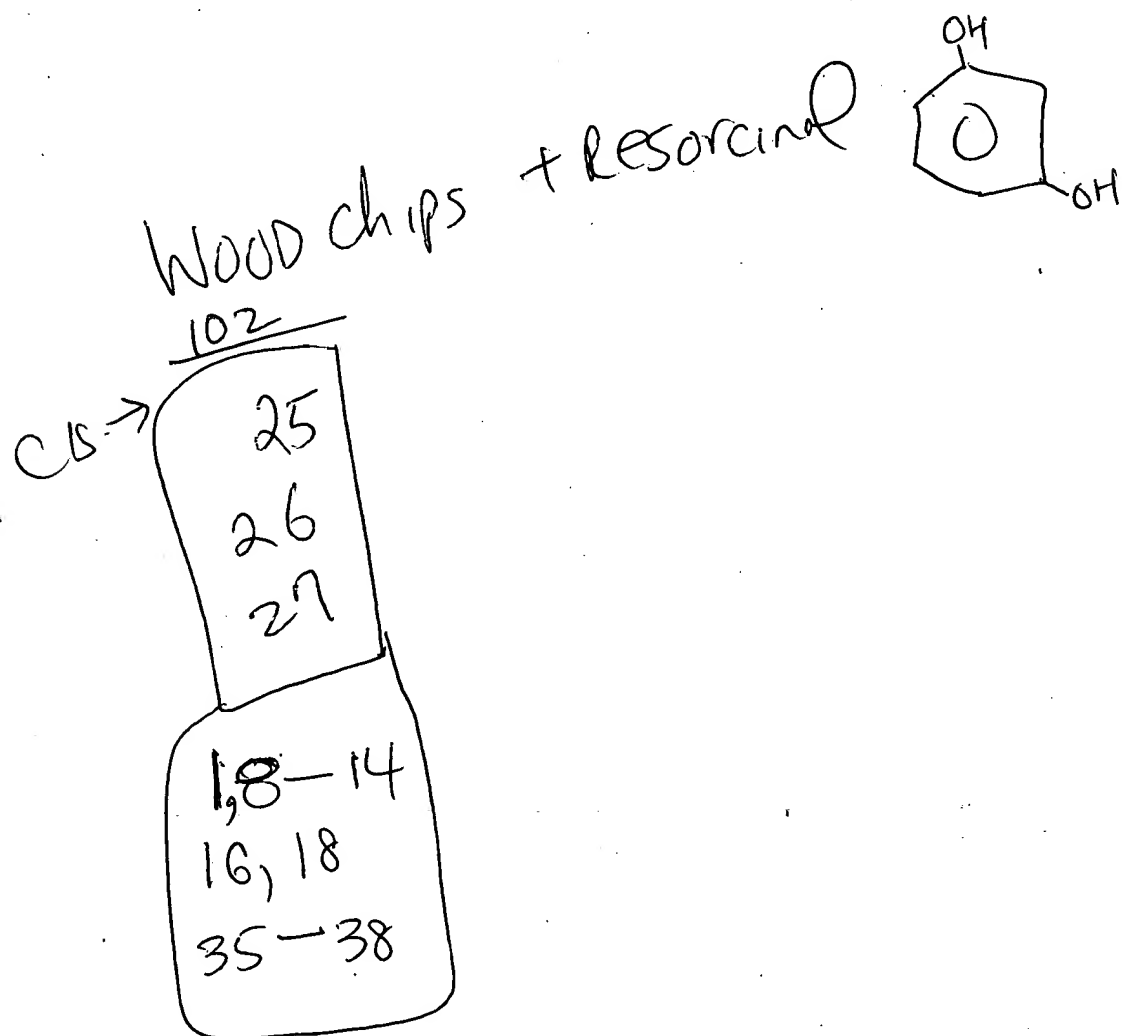 OH
WOOD chips + Resorcinol
OH
102
25
26
27
1,8-14
16, 18
35-38